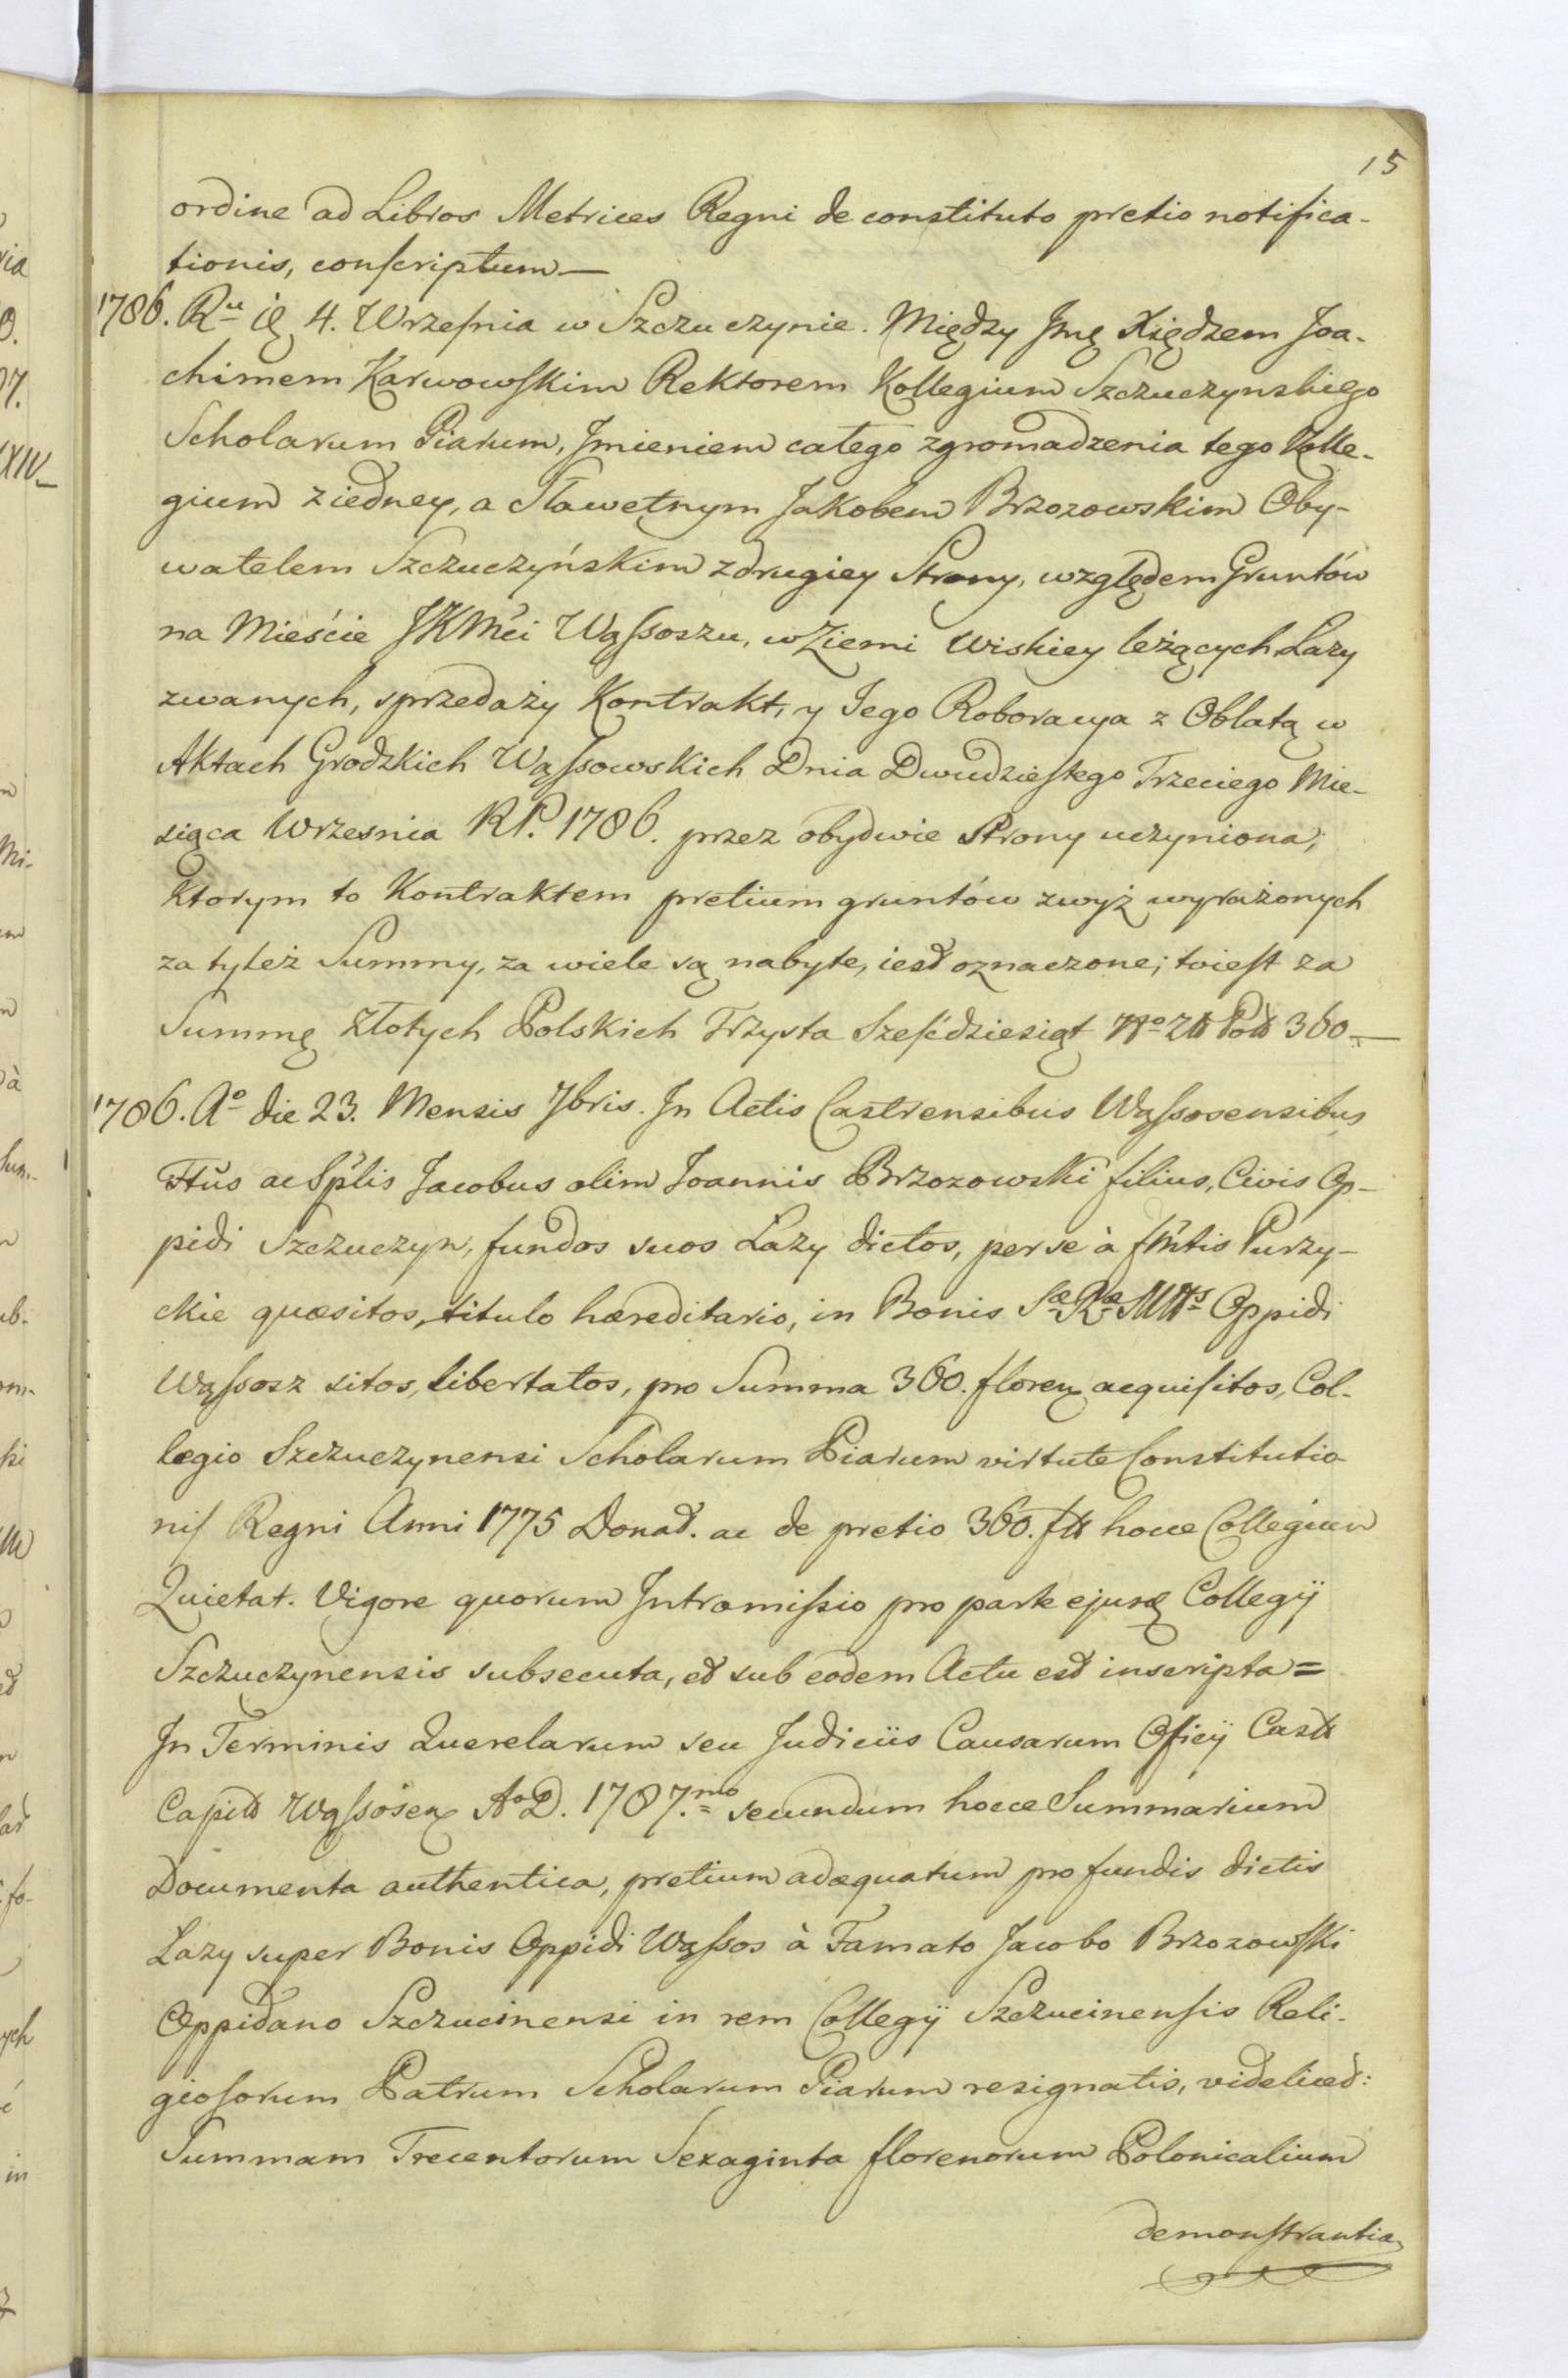 15
ordine ad Libros Metrices Regni de constituto pretio notifica-
tionis, conscriptum—
1786. Ru 4. Wrzesnia w Szczuczynie. Między Jmę Xiędzem Joa-
chimem Karwowskim Rektorem Kollegium Szczuczynskiego
Scholarum Piarum, Jmieniem całego zgromadzenia tego Kolle-
gium z iedney, a Sławetnym Jakobem Brzozowskim Oby-
watelem Szczuczyńskim z drugiey Strony, względem Gruntów
na Mieście JKMci Wąssoszu, w Ziemi Wiskiey leżących Lazy
zwanych, sprzedaży Kontrakt, y Jego Roboracya z Oblatą w
Aktach Grodzkich Wąssowskich Dnia Dwudziestego Trzeciego Mie-
siąca Wrzesnia RP. 1786. przez obydwie Strony uczyniona;
ktorym to Kontraktem pretium gruntów zwyż wyrażonych
za tyleż Summy, za wiele są nabyte, iest oznaczone; toiest za
Summę Złotych Polskich Trzysta Sześćdziesiąt No Złł Poll 360.—
1786. Ao die 23. Mensis 7bris. Jn Actis Castrensibus Wąssosensibus
Fttus ac Splis Jacobus olim Joannis Brzozowski filius, Civis Op-
pidi Szczuczyn, fundos suos Lazy dictos, per se à fmtis Purzy-
ckie quæsitos, titulo hæreditario, in Bonis Sæ Ræ Mttis Oppidi
Wąssosz sitos, libertatos, pro Summa 360. floren acquisitos, Col-
legio Szczuczynensi Scholarum Piarum virtute Constitutio-
nis Regni Anni 1775 Donat. ac de pretio 360. fll hocce Collegium
Quietat. Vigore quorum Jntromissio pro parte ejusd Collegij
Szczuczynensis subsecuta, et sub eodem Actu est inscripta=
Jn Terminis Querelarum seu Judiciis Causarum Officij Castr
Capitt Wąssosen Ao D. 1787.mo secundum hocce Summarium
Documenta authentica, pretium adæquatum pro fundis dictis
Lazy super Bonis Oppidi Wąssos à Famato Jacobo Brzozowski
Oppidano Szczucinensi in rem Collegij Szczucinensis Reli-
giosorum Patrum Scholarum Piarum resignatis, videlicet:
Summam Trecentorum Sexaginta florenorum Polonicalium
demonstrantia